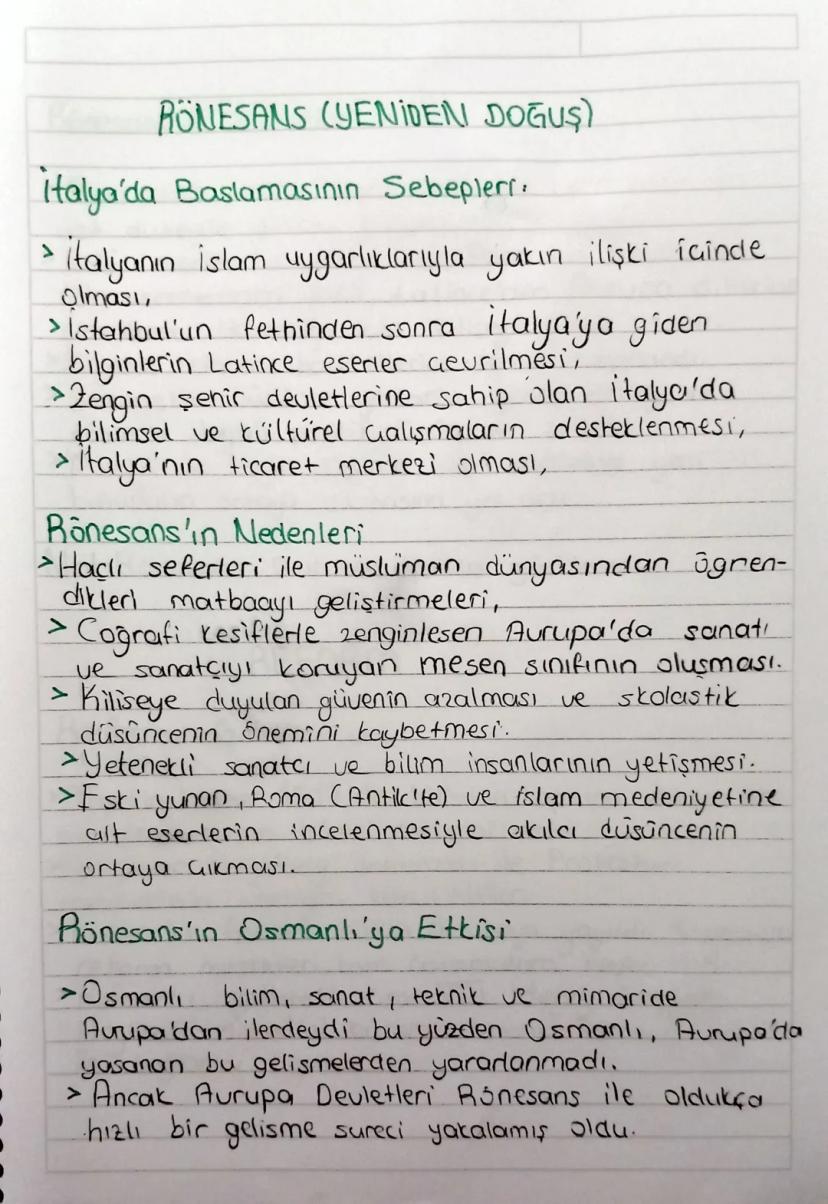 RÖNESANS (YENİDEN DOĞUŞ)
İtalya'da Baslamasının Sebepleri:
> İtalyanın islam uygarlıklarıyla yakın ilişki icinde
olması,
> İstanbul'un fethinden sonra italya'ya giden
bilginlerin Latince eserler çevrilmesi,
> Zengin şehir devletlerine sahip olan italya'da
bilimsel ve kültürel çalışmaların desteklenmesi,
> İtalya'nın ticaret merkezi olması,
Rönesans'ın Nedenleri
> Haçlı seferleri ile müslüman dünyasından ögren-
dikleri matbaayı geliştirmeleri,
> Coğrafi kesiflerle zenginlesen Avrupa'da sanatı
ve sanatçıyı koruyan mesen sınıfının oluşması.
> Kiliseye duyulan güvenin azalması ve skolastik
düsüncenin önemini kaybetmesi.
> Yetenekli sanatcı ve bilim insanlarının yetişmesi.
> Eski yunan, Roma (Antik'te) ve islam medeniyetine
ait eserlerin incelenmesiyle akılcı düsüncenin
ortaya çıkması.
Rönesans'ın Osmanlı'ya Etkisi
> Osmanlı bilim, sanat, teknik ve mimaride
Avrupa'dan ilerdeydi bu yüzden Osmanlı, Avrupa'da
yasanan bu gelismelerden yararlanmadı.
> Ancak Avrupa Devletleri Rönesans ile oldukça
hızlı bir gelisme sureci yakalamış oldu.